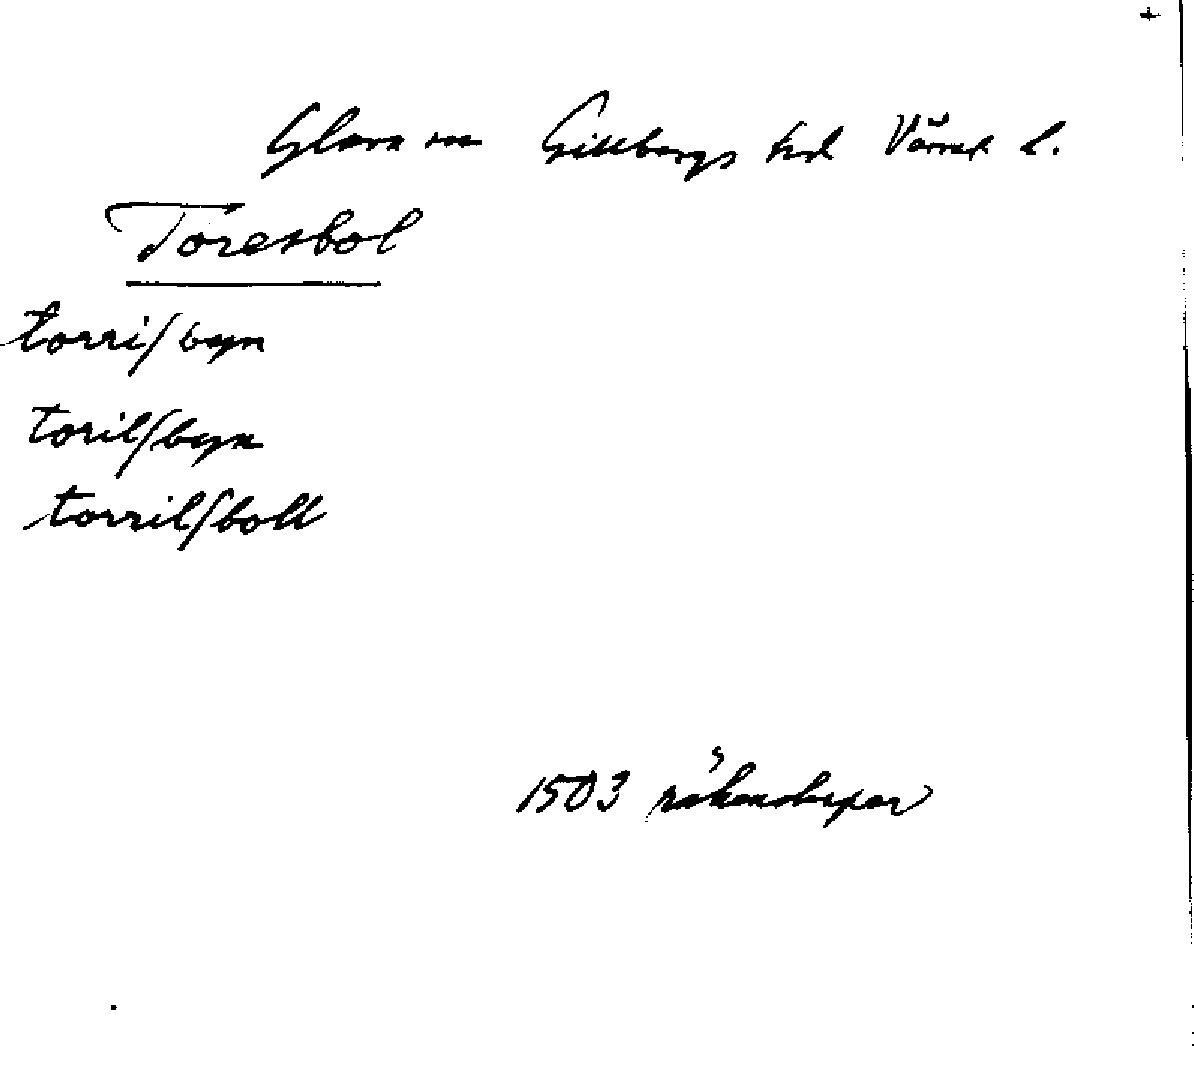 Glava sn Gillbergs hd Värml. l.
Toresbol
torriſbyn
torilſbyn
torrilſboll
1503 räkenskaper